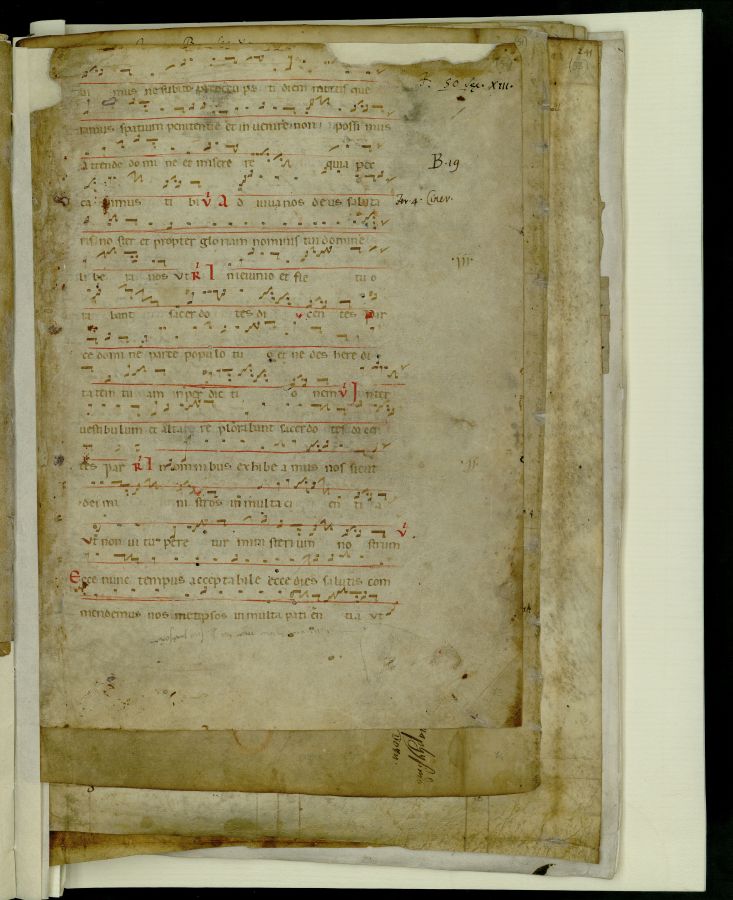 mus ne subito preoccu pa ti diem mortis que
ramus spatium penitentie et in venire non possi mus
Attende do mi ne et misere re quia pec
ca vimus ti bi V A d iuva nos deus saluta
ris no ster et propter gloriam nominis tui domine
li be ra nos Vt R I n ieiunio et fle tu o
ra bant sacer do tes di cen tes Par
ce domine parce populo tu o et ne des here di
ta tem tu am in per dic ti o nem V I nter
vestibulum et altare plorabunt sacerdo tes di cen
tes par R I n omnibus exhibe a mus nos sicut
dei mi ni stros in multa ci en ti a
Vt non vi tu pere tur mini sterium no strum
Ecce nunc tempus acceptabile ecce dies salutis com
mendemus nos metipsos in multa pati en cia Vt
F. 50 sec. XIII.
B. 19
fer 4 Ciner.
.III.
.II.
241